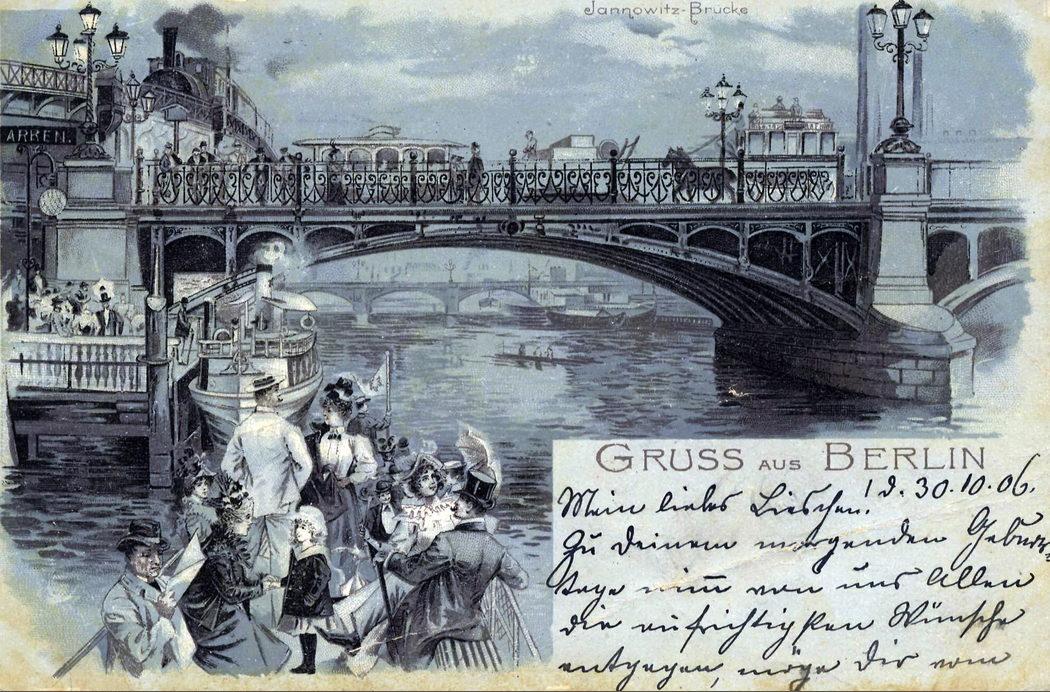 Jannowitz-Brücke
ARREN.
GRUSS AUS BERLIN
Mein liebes Lieschen! d. 30.10.06.
Zu Deinem morgenden Geburts-
tage nim̅ von uns Allen
die aufrichtigsten Wünsche
entgegen, möge Dir vom